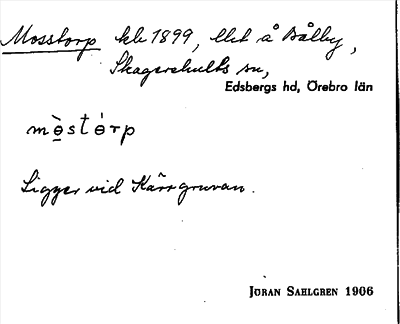 Mosstorp kb 1899, lht å Bålby,
Skagershults sn,
Edsbergs hd, Örebro län
mo̠̍sto̍rp
Ligger vid Kärrgruvan.
JÖRAN SAHLGREN 1906